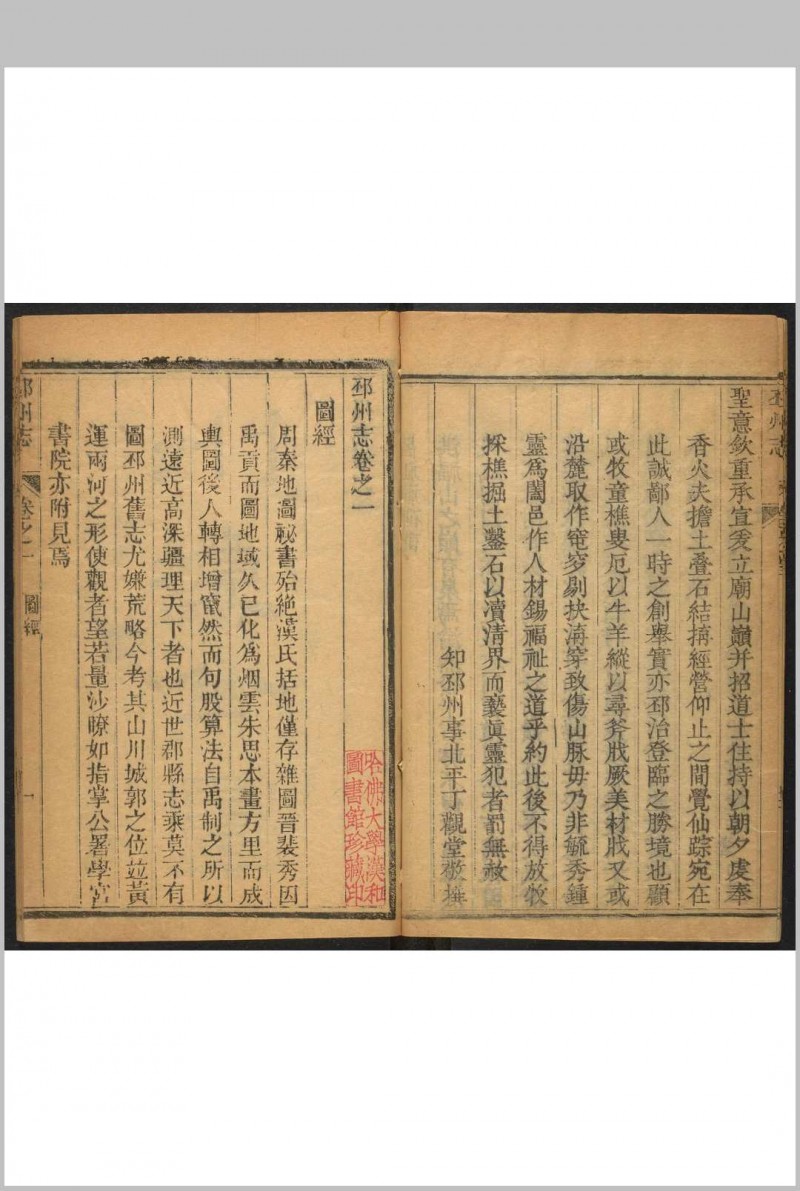 邳州志
聖意欽重承宣爰立廟山巔并招道士住持以朝夕虔奉
香火夫擔土叠石結搆經營仰止之間覺仙踪宛在
此誠鄙人一時之創舉實亦邳治登臨之勝境也顧
或牧童樵叟厄以牛羊縱以尋斧戕厥美材戕又或
沿麓取作窀穸剔抉溝穿致傷山脉毋乃非毓秀鍾
靈爲闔邑作人材錫福祉之道乎約此後不得放牧
採樵掘土鑿石以瀆清界而褻眞靈犯者罰無赦
知邳州事北平丁觀堂敬撰
邳州志卷之一
圖經
周秦地圖祕書殆絶漢氏括地僅存雜圖晉裴秀因
禹貢而圖地域久已化爲烟雲朱思本畫方里而成
輿圖後人轉相增竄然而句股算法自禹制之所以
測遠近高深疆理天下者也近世郡縣志乘莫不有
圖邳州舊志尤嫌荒略今考其山川城郭之位並黃
運兩河之形使觀者望若量沙瞭如指掌公署學宮
書院亦附見焉
邳州志 卷之一 圖經 一
哈佛大學漢和
圖書館珍藏印